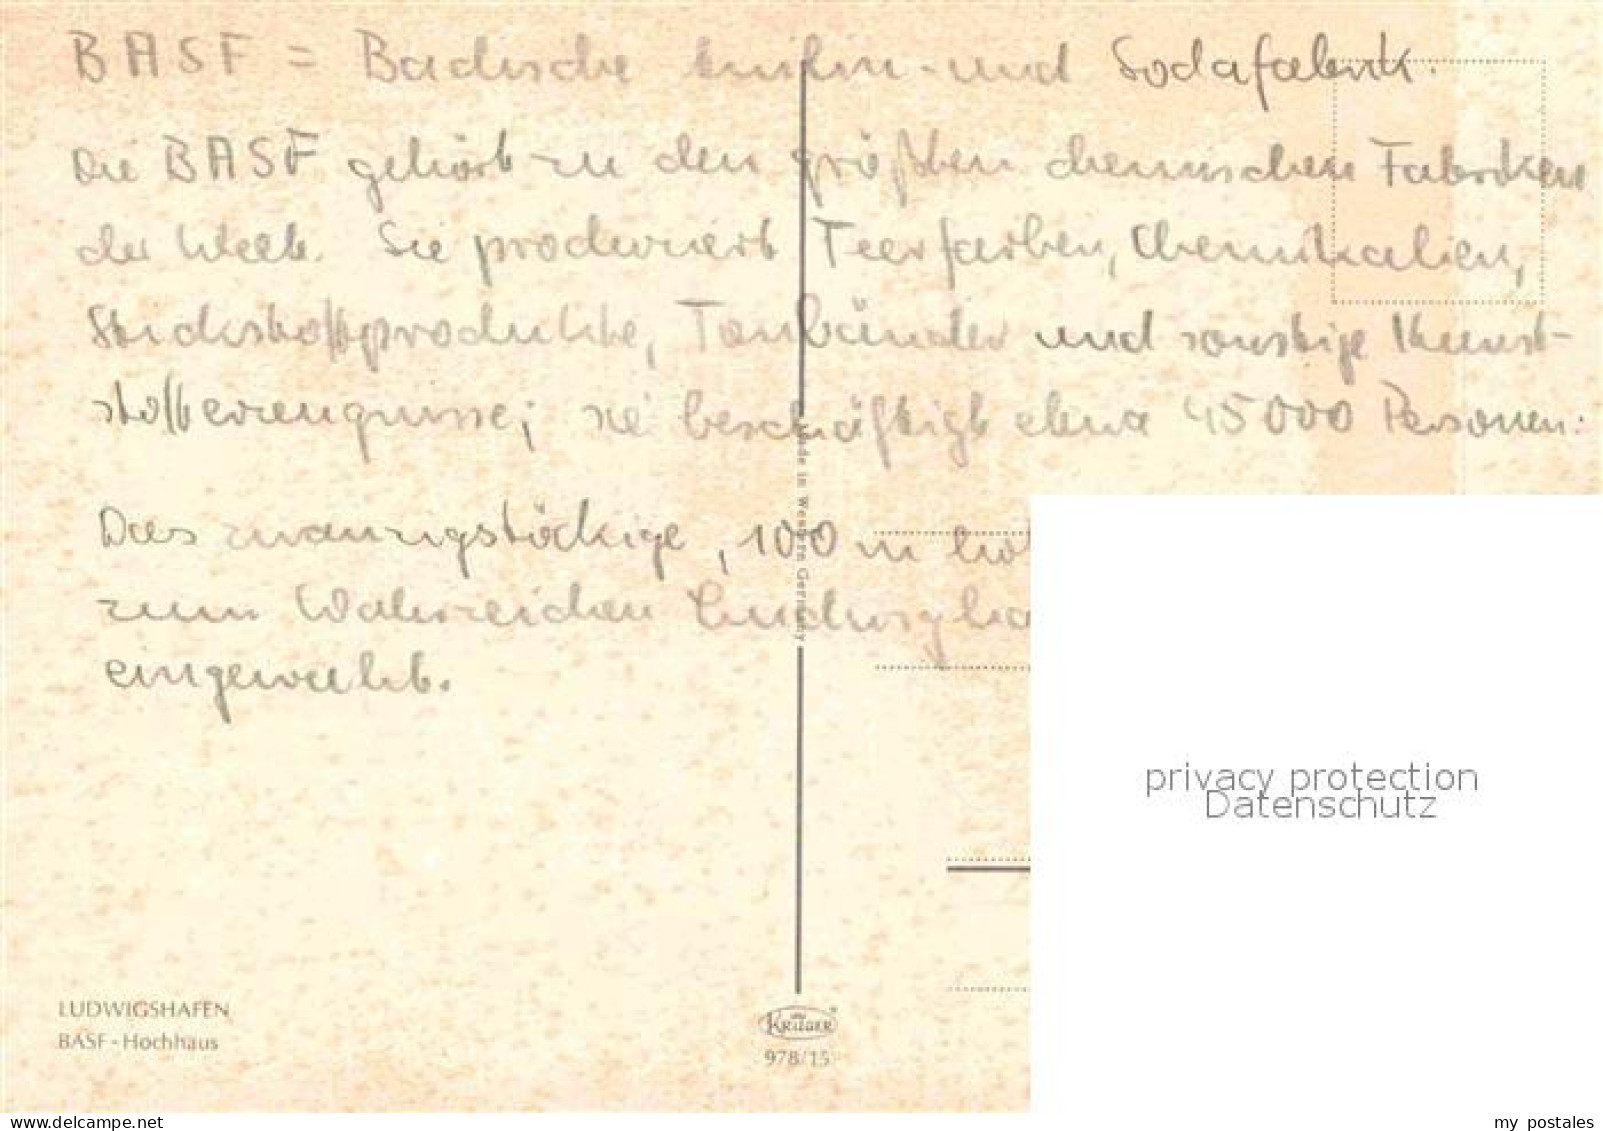 BASF = Badische Anilin- und Sodafabrik.
Die BASF gehört zu den größten chemischen Fabriken
der Welt. Sie produziert Teerfarben, Chemikalien,
Stickstoffprodukte, Tonbänder und sonstige Kunst-
stofferzeugnisse; sie beschäftigt etwa 45000 Personen.
Das zwanzigstöckige, 100 m ho
zum Wahrzeichen Ludwigsha
eingeweiht.
Made in Western Germany
privacy protection
Datenschutz
LUDWIGSHAFEN
BASF - Hochhaus
KRÜGER
978/15
my postales